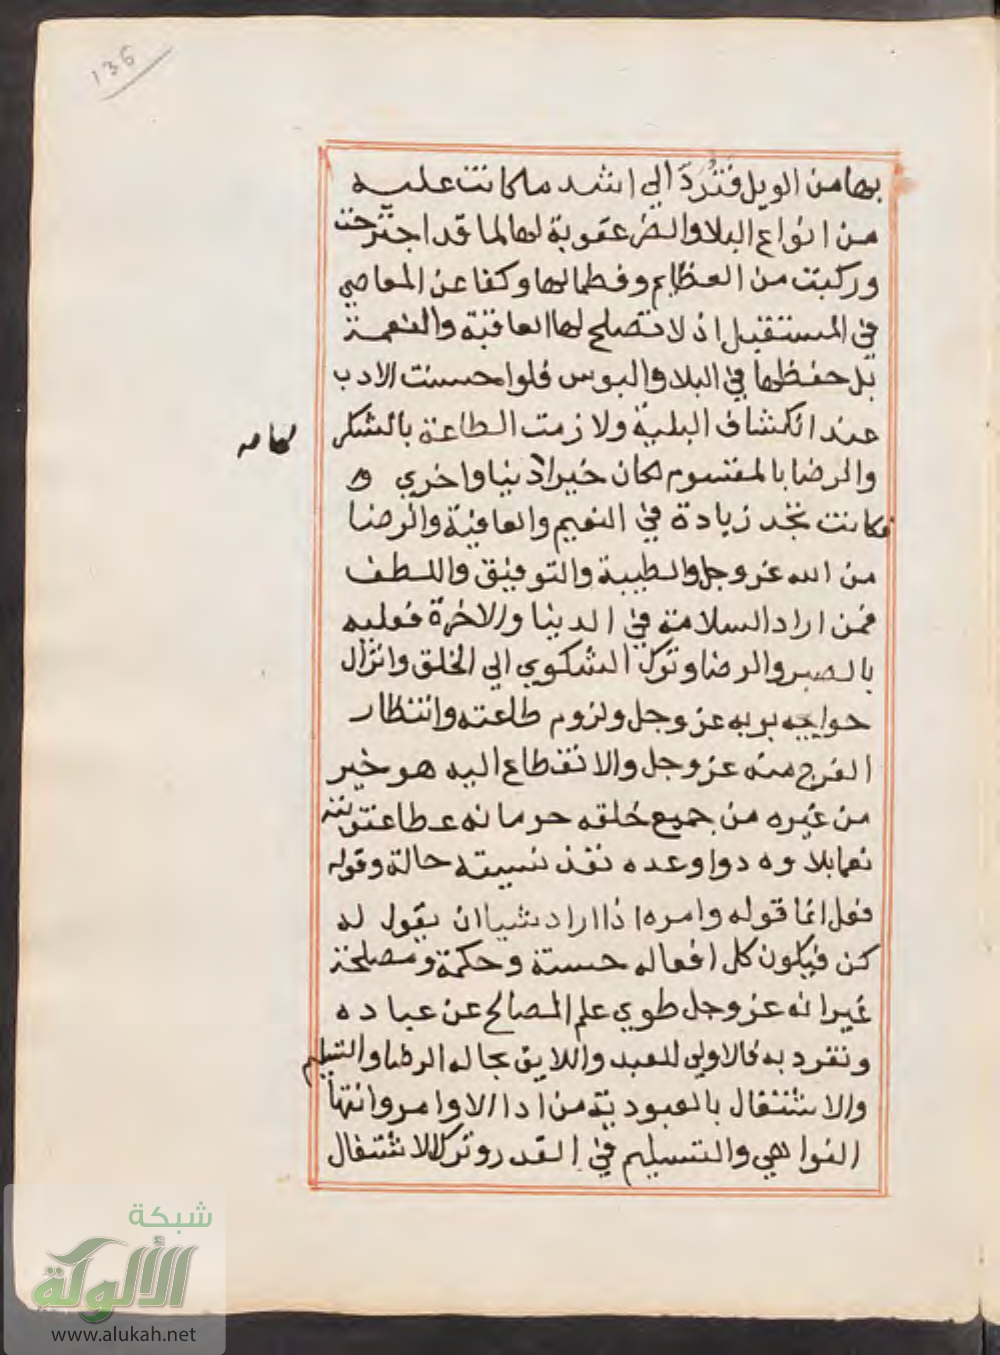 136
بها من الويل فتُردَّ الي اشد ما كانت عليه
من انواع البلا والضر عقوبة لها لما قد اجترحت
وركبت من العظايم وفطما لها وكفا عن المعاصي
في المستقبل اذ لا تصلح لها العافية والنعمة
بل حفظها في البلا والبوس فلوا حسنت الادب
عند انكشاف البلية ولازمت الطاعة بالشكر
والرضا بالمقسوم لكان خيرا دنيا واخري و
فكانت تجد زيادة في النعيم والعافية والرضا
من الله عز وجل والطيبة والتوفيق واللطف
فمن اراد السلامة في الدنيا والاخرة فعليه
بالصبر والرضا وترك الشكوي الي الخلق وانزال
حوايجه بربه عز وجل ولزوم طاعته وانتظار
الفرج منه عز وجل والانقطاع اليه هو خير
من غيره من جميع خلقه حرمانه عطا عقوبته
نعما بلاوه دوا وعده نقد نسيته حالة وقوله
فعل انما قوله وامره اذا اراد شيا ان يقول له
كن فيكون كل افعاله حسنة وحكمة ومصلحة
غير انه عز وجل طوي علم المصالح عن عباده
وتفرد به فالاولي للعبد واللايق بحاله الرضا والتسليم
والاشتغال بالعبودية من ادا الاوامر وانتها
النواهي والتسليم في القدر وترك الاشتغال
شبكة
الألوكة
www.alukah.net